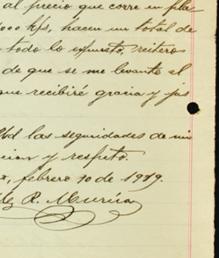 al precio que corre en pla
000 kgs, hacen un total de
todo lo expuesto, reitero
de que se me levante el
que recibiré gracia y jus
Ud las seguridades de mi
cion y respeto.
febrero 10 de 1919.
R. Murúa